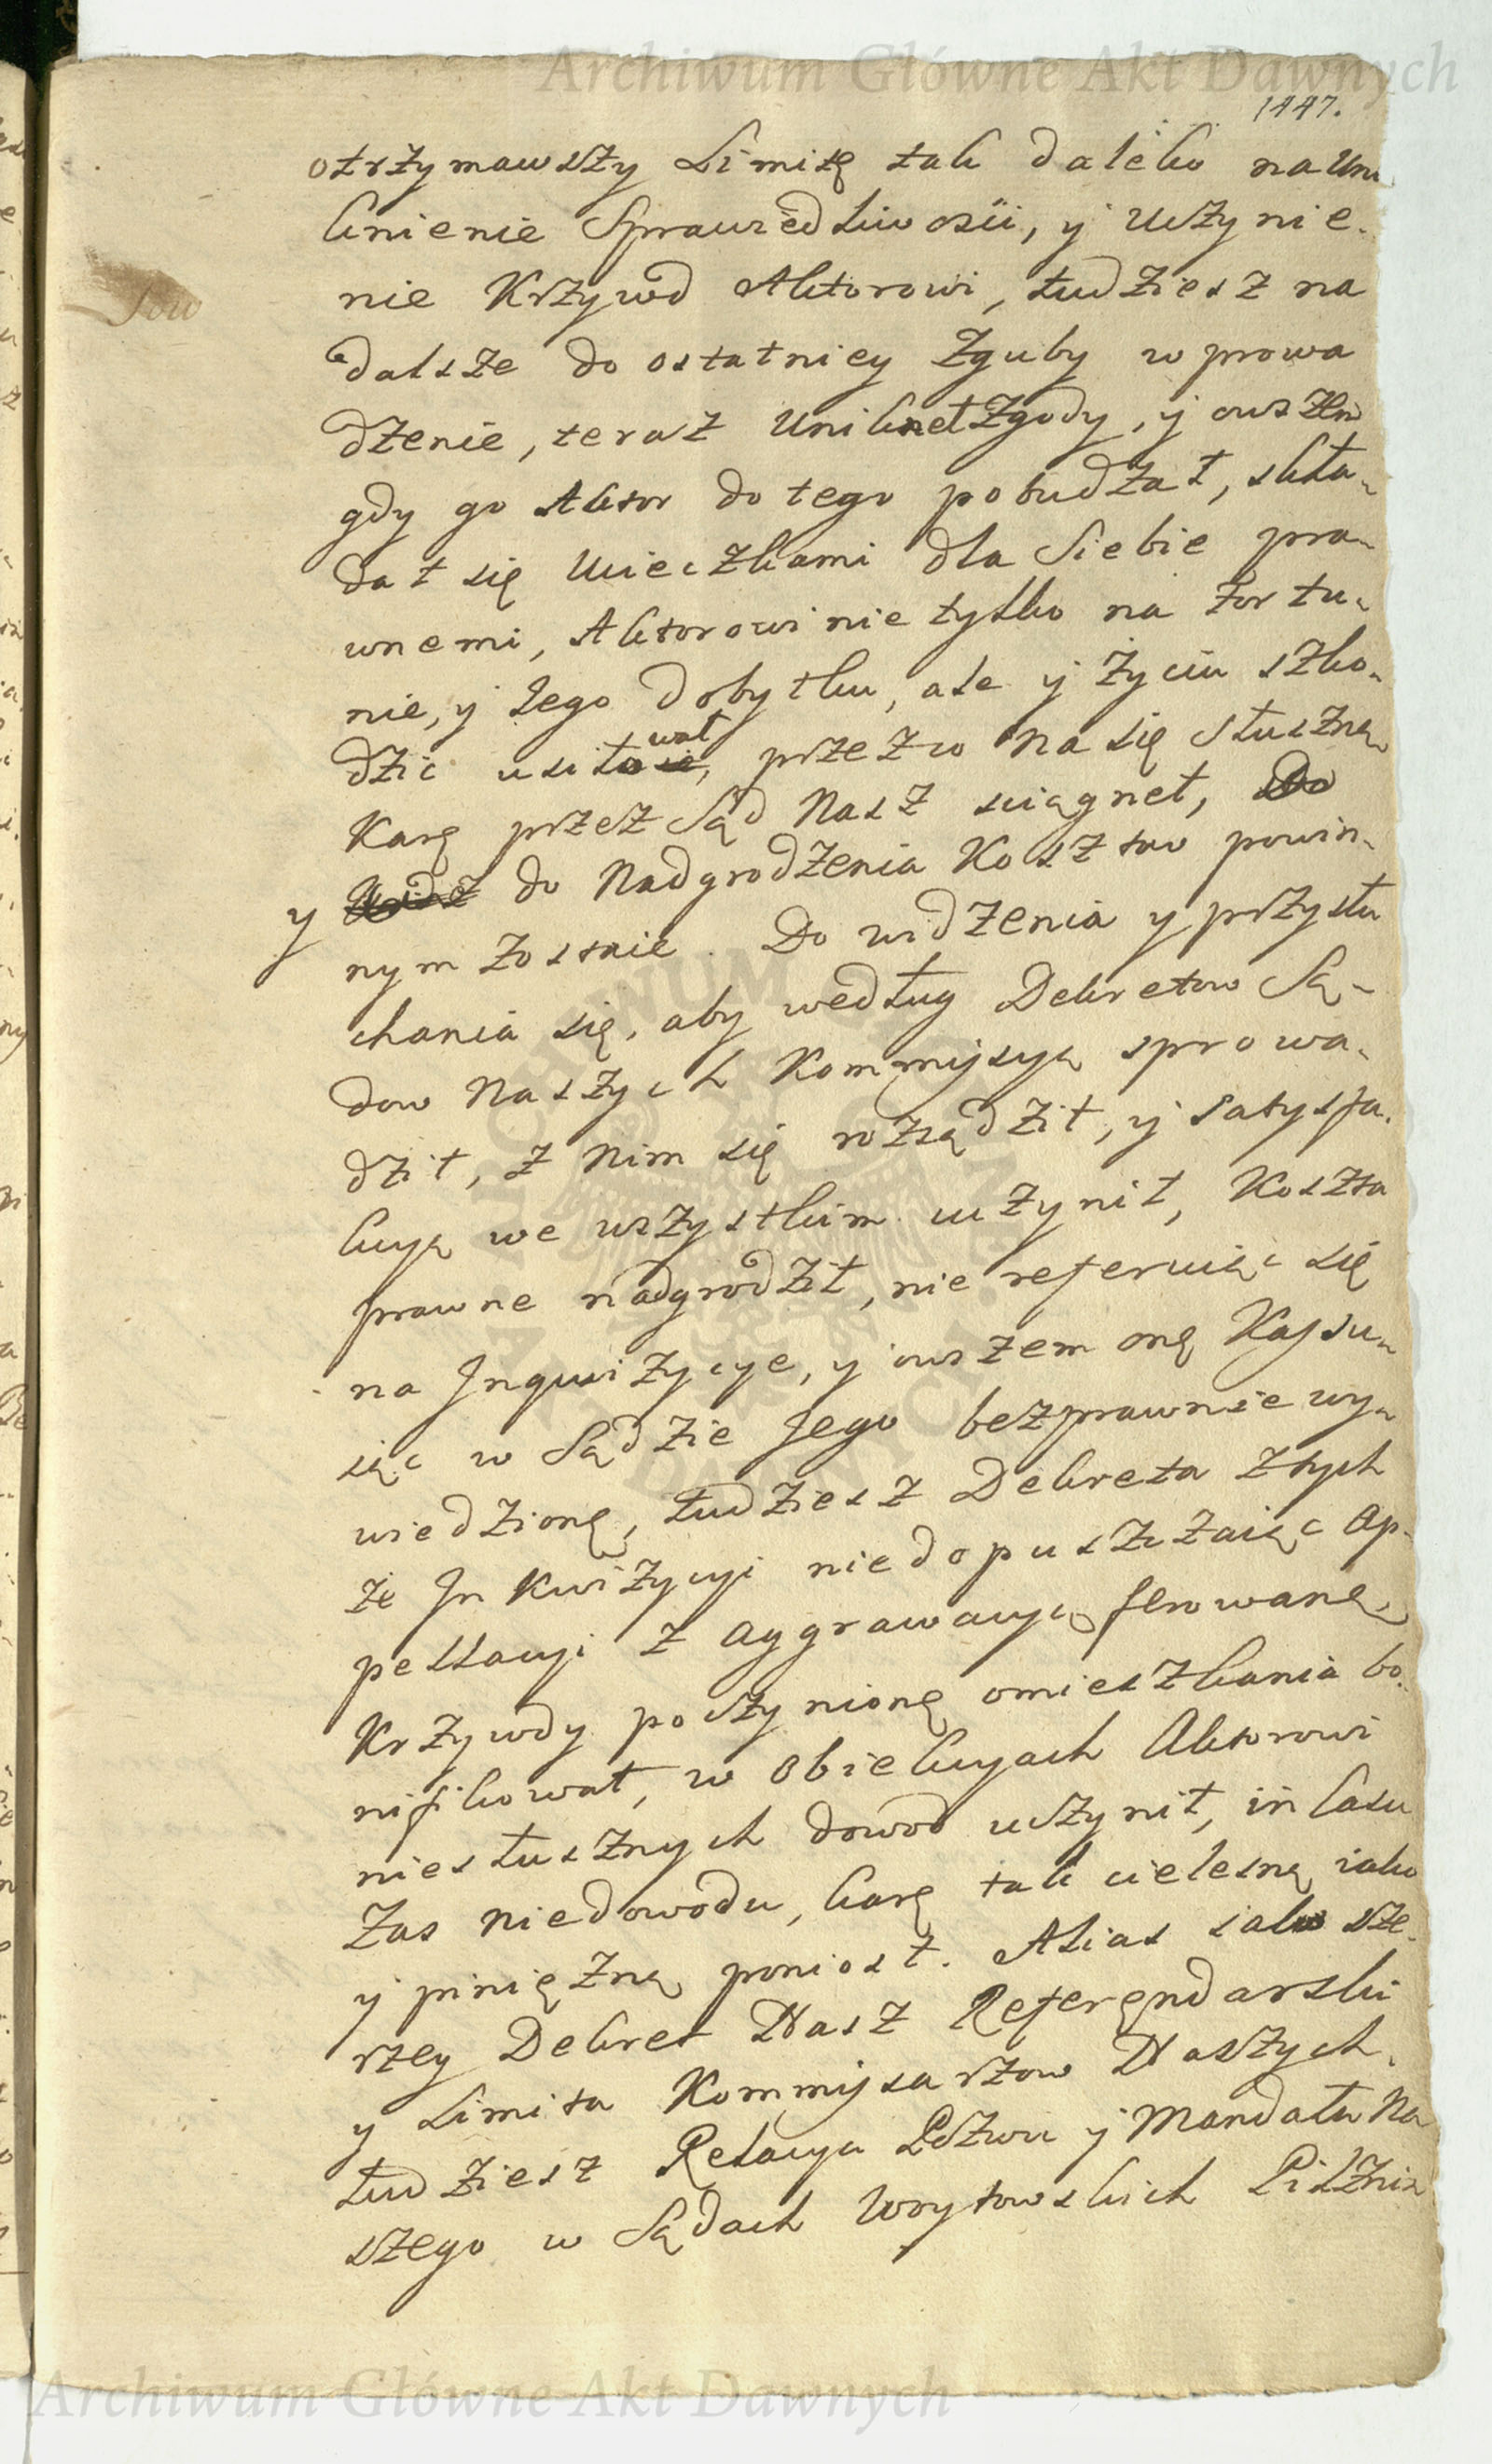 Archiwum Główne Akt Dawnych
1447.
otrzymawszy Limitę tak daleko na Uni
knienie Sprawiedliwosci, y Uczynie-
nie Krzywd Aktorowi, tudziesz na
dalsze do ostatniey Zguby wprowa
dzenie, teraz Uniknełzgody, y owszem
gdy go Aktor do tego pobudzał, skła-
dał się Ucieczkami dla Siebie pra-
wnemi, Aktorowi nie tylko na fortu-
nie, y Jego dobytku, ale y Zyciu szko-
dzic usiłował, przezco na się słuszną
Karę przez Sąd Nasz sciągneł,
y do Nadgrodzenia Kosztow powin-
nym zostaie. Do widzenia y przysłu
chania się, aby według Dekretow Są-
dow Naszych Kommissyą sprowa-
dził, z Nim się rozsądził, y satysfa-
kcyą we wszystkim uczynił, Koszta
prawne nadgrodził, nie referuiąc się
na Inquizycye, y owszem onę Kassu-
iąc w Sądzie Jego bezprawnie wy-
wiedzionę, tudziesz Dekreta z tych
ze Inkwizycyi niedopuszczaiąc Ap-
pellacyi z aggrawacyą ferowanę,
Krzywdy poczynionę omieszkania bo-
nifikował, w Obiekcyach Aktorowi
niesłusznych dowod uczynił, in casu
Zas niedowodu, karę tak cielesną iako
y pinięzną poniosł. Alias iako sze-
rzey Dekret Nasz Referęndarski
y Limita Kommissarzow Naszych,
tudziesz Relacya Pozwu y Mandatu Na
szego w Sądach Woytowskich Pilznin
Archiwum Główne Akt Dawnych